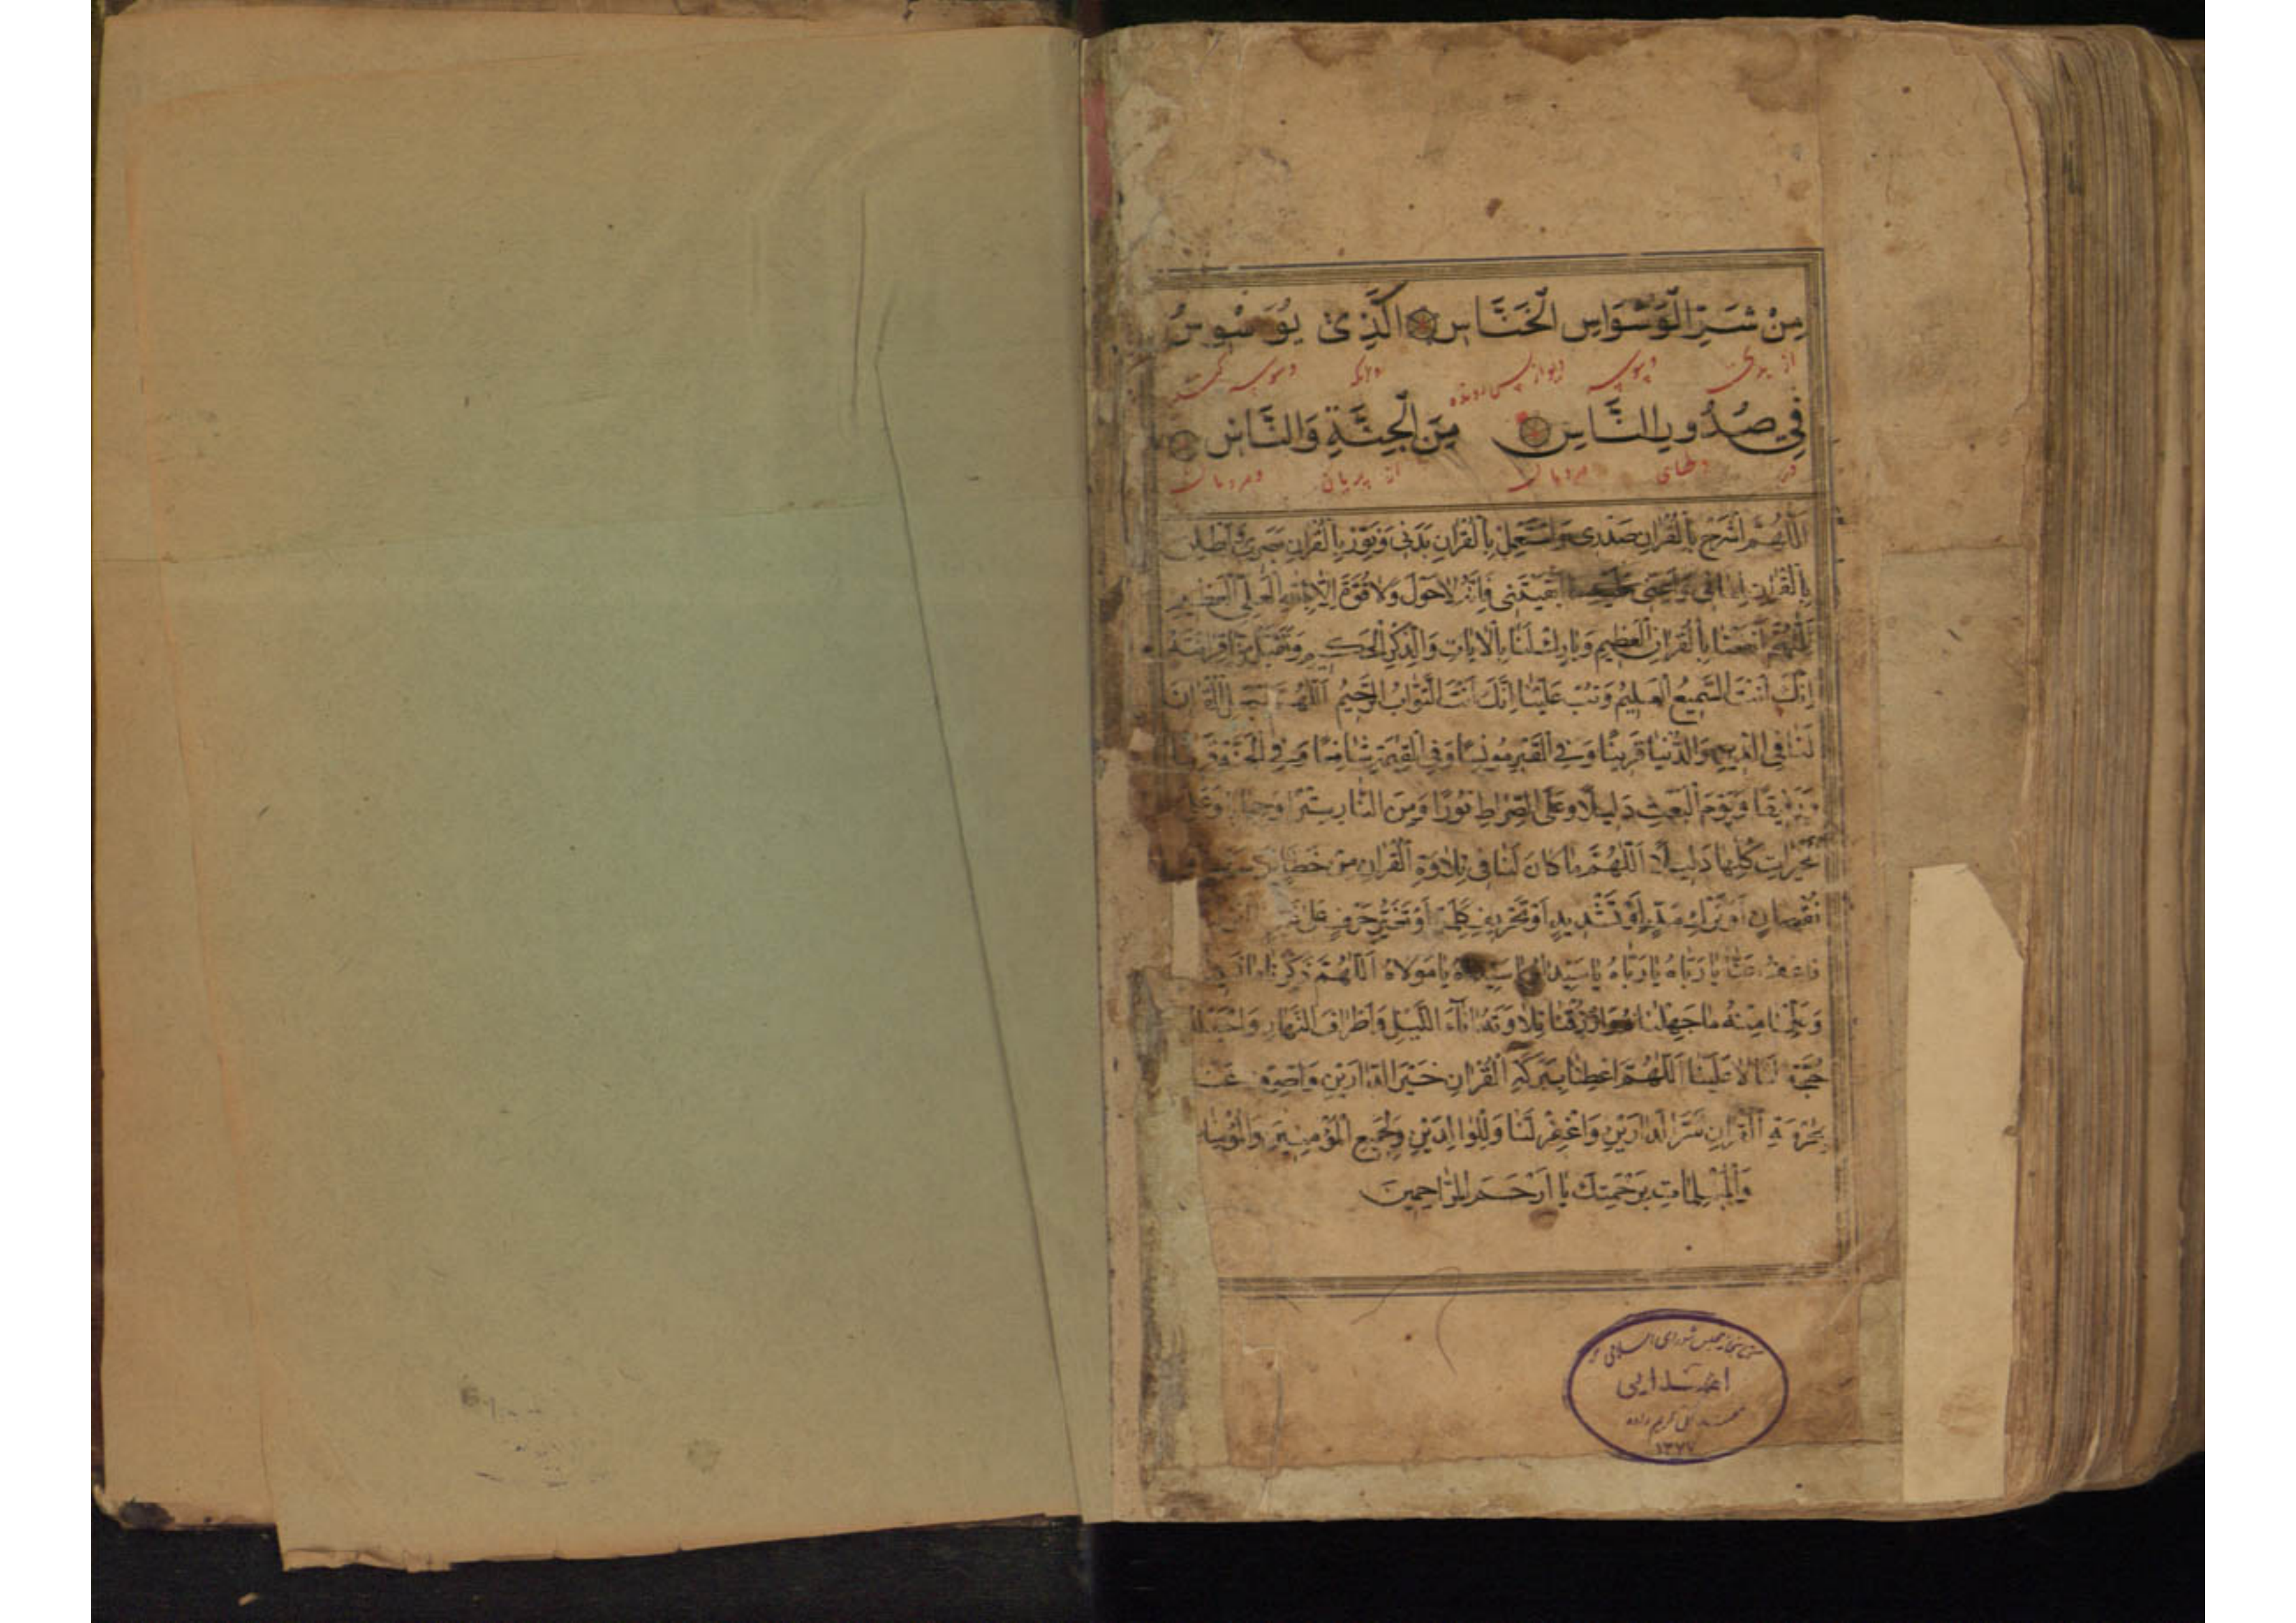 مِنْ شَرِّ الْوَسْوَاسِ الْخَنَّاسِ الَّذِى يُوَسْوِسُ
از بدی وسوسه دیو باز پس رونده وسوسه
فِى صُدُورِ النَّاسِ مِنَ الْجِنَّةِ وَالنَّاسِ
در دلهای مردمان از پریان ومردمان
اَللّٰهُمَّ اشْرَحْ بِالْقُرْاٰنِ صَدْرِى وَاسْتَعْمِلْ بِالْقُرْاٰنِ بَدَنِى وَنَوِّرْ بِالْقُرْاٰنِ بَصَرِى وَاَطْلِقْ
بِالْقُرْاٰنِ لِسَانِى وَاَعِنِّى عَلَيْهِ مَا اَبْقَيْتَنِى فَاِنَّهُ لَاحَوْلَ وَلَاقُوَّةَ اِلَّا بِاللّٰهِ الْعَلِىِّ الْعَظِيمِ
اَللّٰهُمَّ انْفَعْنَا بِالْقُرْاٰنِ الْعَظِيمِ وَبَارِكْ لَنَا بِالْاٰيَاتِ وَالذِّكْرِ الْحَكِيمِ وَتَقَبَّلْ مِنَّا قِرَائَتَهُ
اِنَّكَ اَنْتَ السَّمِيعُ الْعَلِيمُ وَتُبْ عَلَيْنَا اِنَّكَ اَنْتَ التَّوَّابُ الرَّحِيمُ اَللّٰهُمَّ اجْعَلِ الْقُرْاٰنَ
لَنَا فِى الدُّنْيَا قَرِينًا وَفِى الْقَبْرِ مُونِسًا وَفِى الْقِيٰمَةِ شَافِعًا وَفِى الْجَنَّةِ
رَفِيقًا وَيَوْمَ الْبَعْثِ دَلِيلًا وَعَلَى الصِّرَاطِ نُورًا وَمِنَ النَّارِ سِتْرًا وَحِجَابًا
الْخَيْرَاتِ كُلِّهَا دَلِيلًا اَللّٰهُمَّ مَاكَانَ لَنَا فِى تِلَاوَةِ الْقُرْاٰنِ مِنْ خَطَاءٍ
نُقْصَانٍ اَوْ تَرْكِ مَدٍّ اَوْ تَشْدِيدٍ اَوْ تَحْرِيفِ كَلِمَةٍ اَوْ تَغَيُّرِ حَرْفٍ
عَنَّا يَا رَبَّاهُ يَا رَبَّاهُ يَا سَيِّدَاهُ يَا سَيِّدَاهُ يَا مَوْلَاهُ اَللّٰهُمَّ ذَكِّرْنَا
وَعَلِّمْنَا مِنْهُ مَا جَهِلْنَا وَارْزُقْنَا تِلَاوَتَهُ اٰنَاءَ اللَّيْلِ وَاَطْرَافَ النَّهَارِ وَاجْعَلْهُ
حُجَّةً لَنَا لَا عَلَيْنَا اَللّٰهُمَّ اَعْطِنَا بِبَرَكَةِ الْقُرْاٰنِ خَيْرَ الدَّارَيْنِ وَاصْرِفْ عَنَّا
بِحُرْمَةِ الْقُرْاٰنِ شَرَّ الدَّارَيْنِ وَاغْفِرْ لَنَا وَلِلْوَالِدَيْنِ وَلِجَمِيعِ الْمُؤْمِنِينَ وَالْمُؤْمِنَاتِ
وَالْمُسْلِمَاتِ بِرَحْمَتِكَ يَا اَرْحَمَ الرَّاحِمِينَ
کتابخانه مجلس شورای اسلامی
اهدایی
کریم زاده
۱۳۷۷